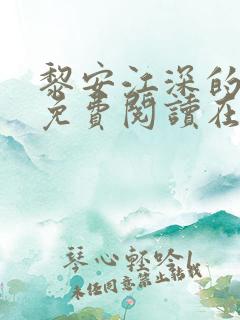 黎安江深的
免費閱讀在
琴心輕吟
未经同意禁止转载